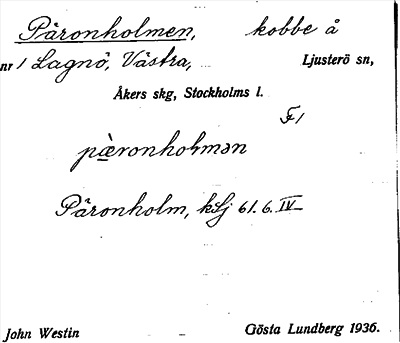 Päronholmen, kobbe å
nr 1 Lagnö, Västra, Ljusterö sn,
Åkers skg, Stockholms l.
F1
pæ̀ronholmən
Päronholm, kSj 61.6.IV
John Westin Gösta Lundberg 1936.